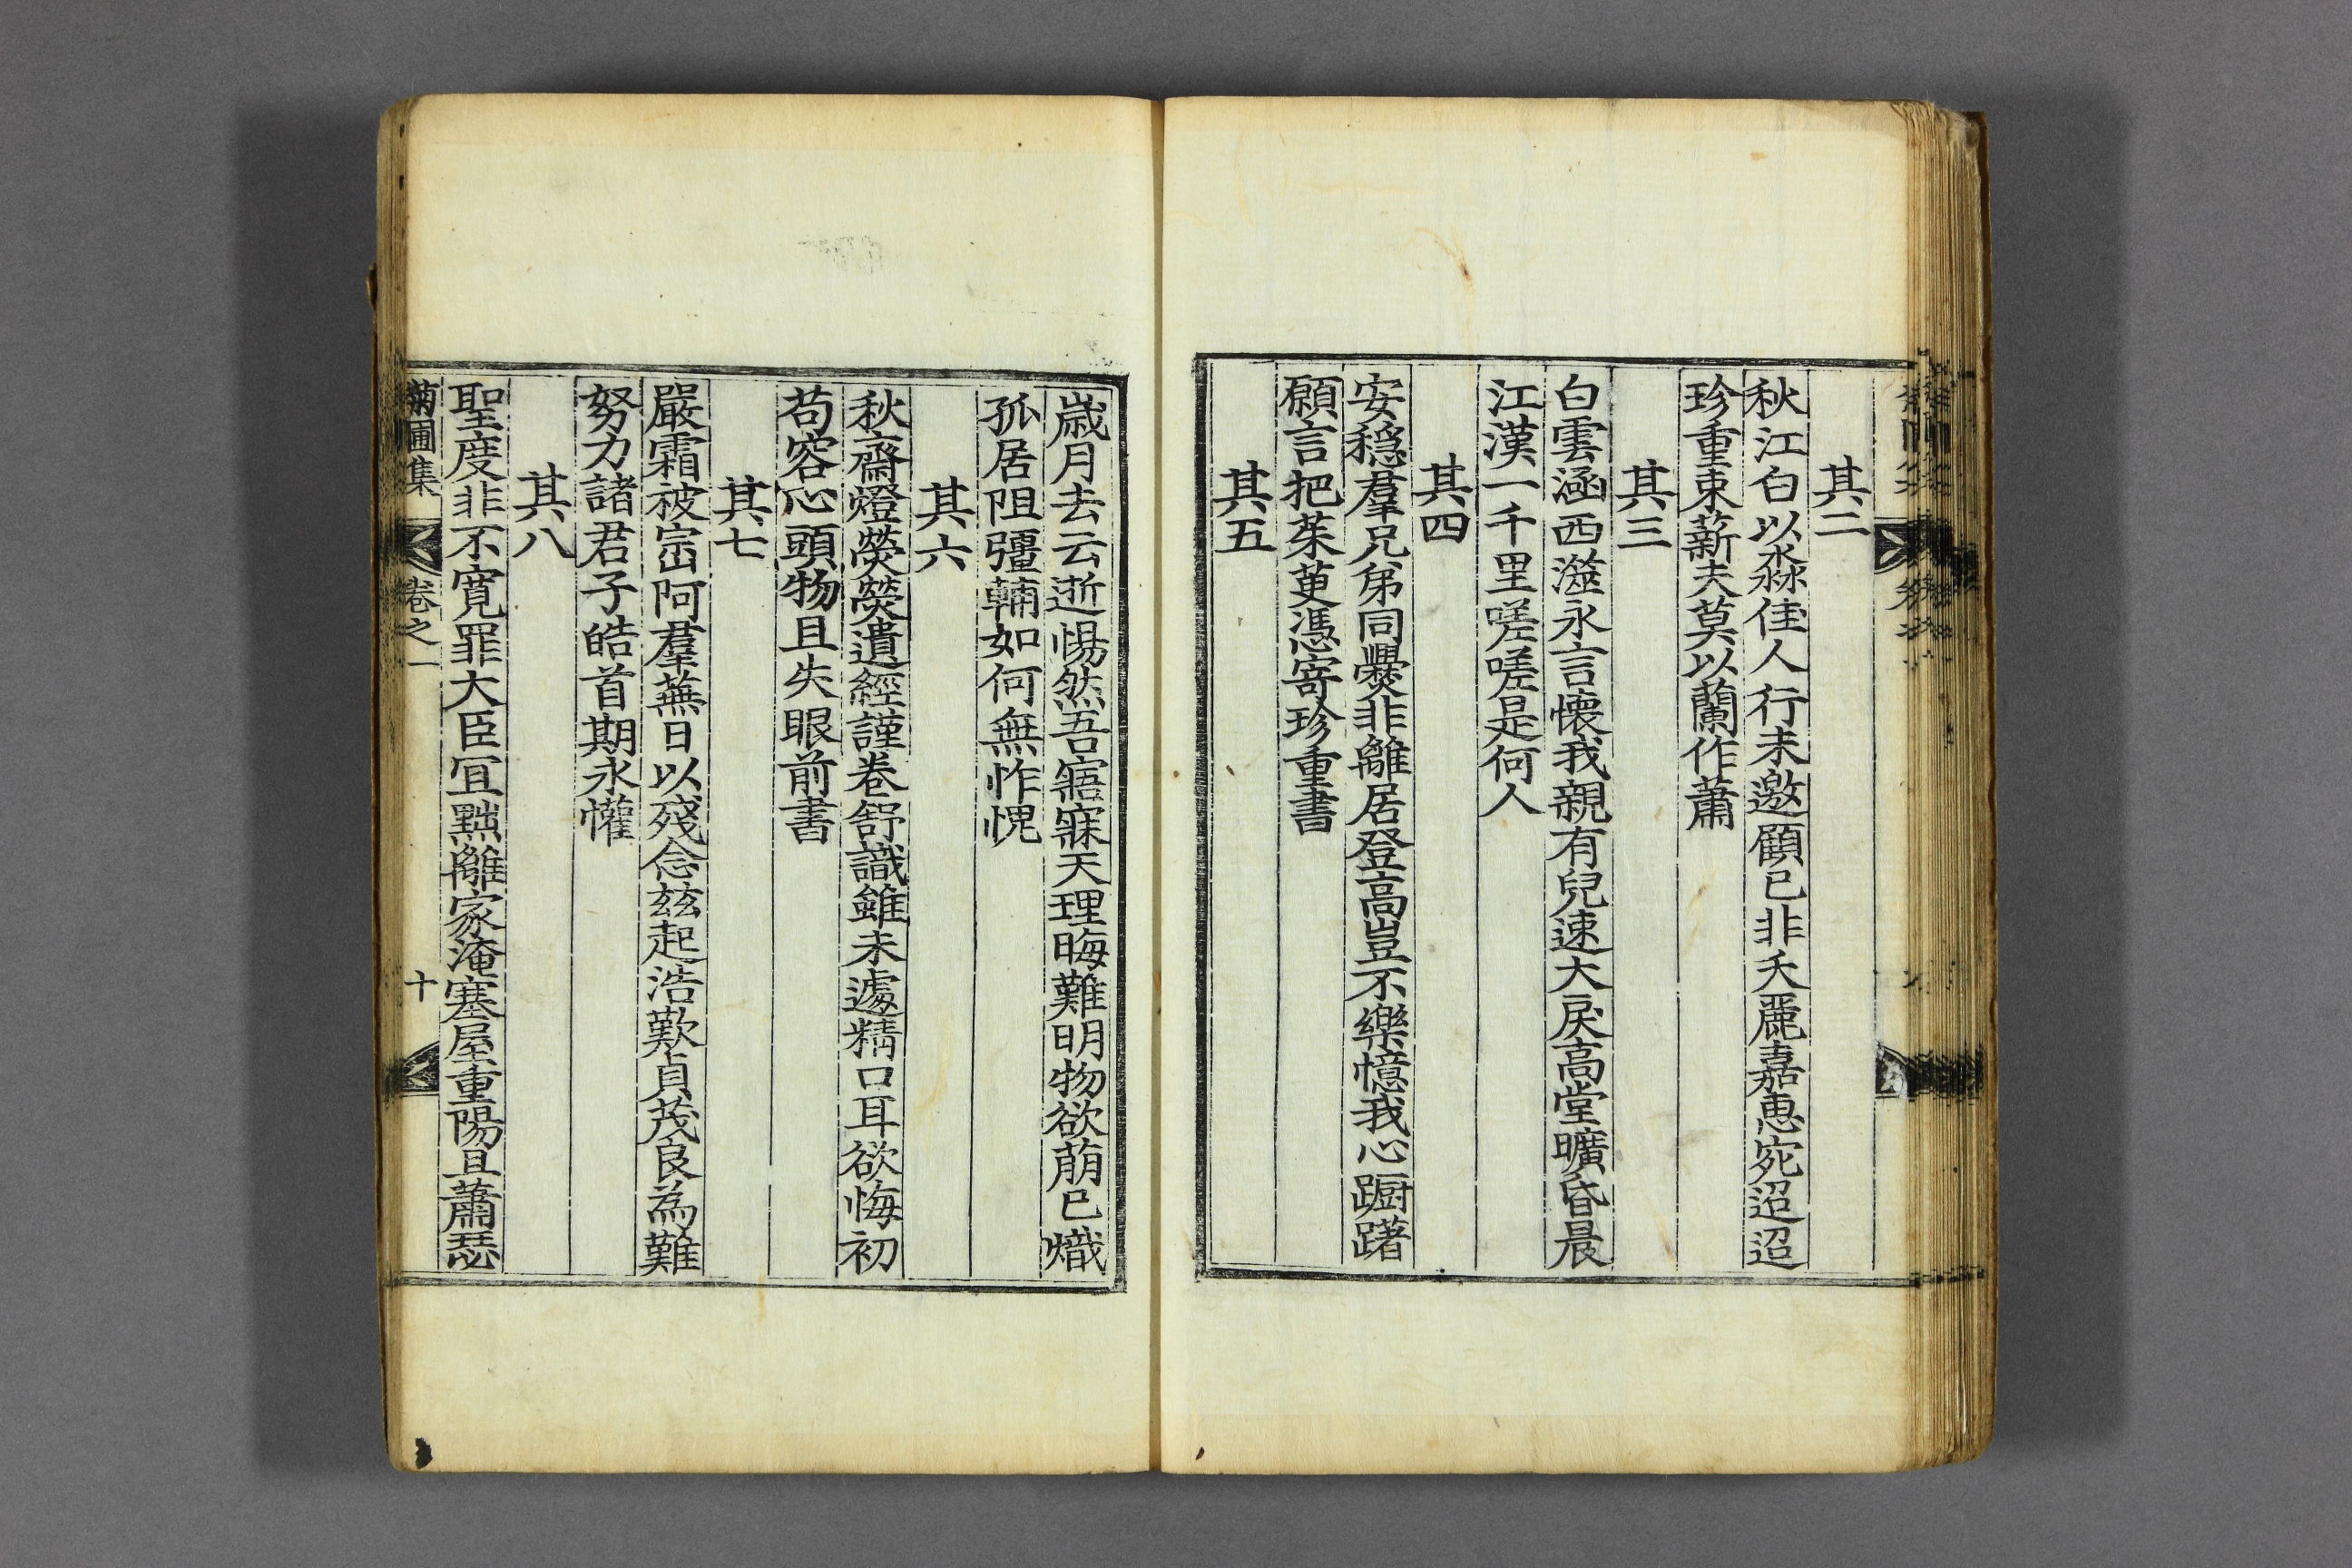 其二
秋江白以淼佳人行未邀顧已非夭麗嘉惠宛迢迢
珍重束薪夫莫以蘭作蕭
其三
白雲涵西澨永言懷我親有兒速大戾高堂曠昏晨
江漢一千里嗟嗟是何人
其四
安穩羣兄弟同爨非離居登高豈不樂憶我心踟躇
願言把茱萸憑寄珍重書
其五
歲月去云逝惕然吾寤寐天理晦難明物欲萠已熾
孤居阻彊輔如何無怍愧
其六
秋齋燈熒熒遺經謹卷舒識雖未遽精口耳欲悔初
苟容心頭物且失眼前書
其七
嚴霜被崇阿羣蕪日以殘念玆起浩歎貞茂良為難
努力諸君子皓首期永懽
其八
聖度非不寬罪大臣宜黜離家淹塞屋重陽且蕭瑟
菊圃集 卷之一 十